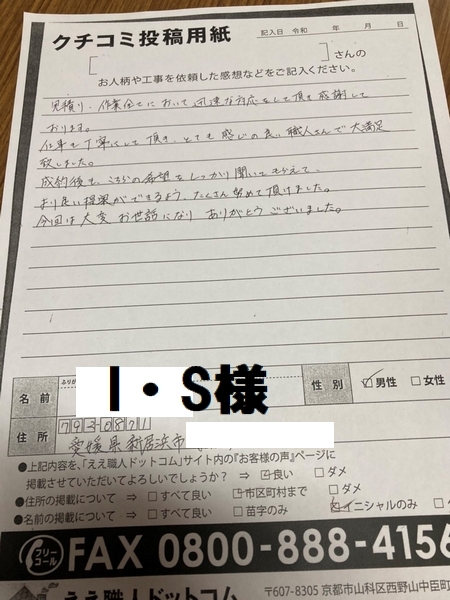 クチコミ投稿用紙
記入日 令和 年 月 日
[ ]さんの
お人柄や工事を依頼した感想などをご記入ください。
見積り、作業全てにおいて迅速な対応をして頂き感謝して
おります。
仕事も丁寧にして頂き、とても感じの良い職人さんで大満足
致しました。
成約後も、こちらの希望をしっかり聞いてもらえて、
より良い提案ができるよう、たくさん努めて頂けました。
今回は大変お世話になりありがとうございました。
ふりが
名前 I・S様 性別 ☑男性 □女性
住所 792-0871
愛媛県新居浜市
●上記内容を、「ええ職人ドットコム」サイト内の『お客様の声』ページに
掲載させていただいてよろしいでしょうか? ⇒ ☑良い □ダメ
●住所の掲載について ⇒ □すべて良い ☑市区町村まで □ダメ
●名前の掲載について ⇒ □すべて良い □苗字のみ ☑イニシャルのみ
フリーコール FAX 0800-888-4156
ええ職人ドットコム 〒607-8305 京都市山科区西野山中臣町